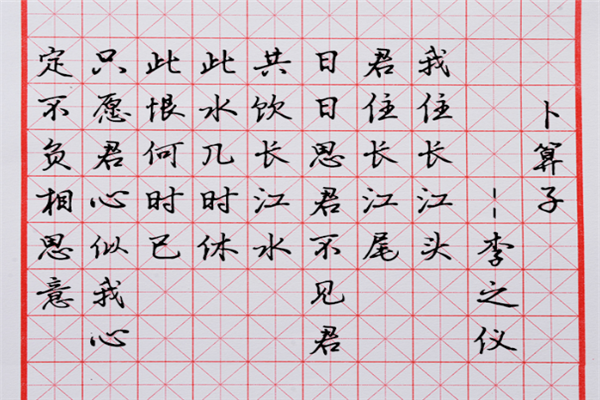 卜算子
—李之仪
我住长江头
君住长江尾
日日思君不见君
共饮长江水
此水几时休
此恨何时已
只愿君心似我心
定不负相思意